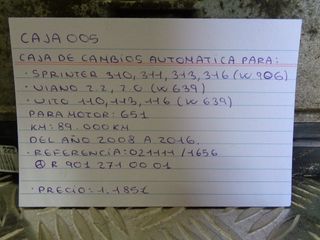 CAJA 005
CAJA DE CAMBIOS AUTOMATICA PARA:
· SPRINTER 310, 311, 313, 316 (W 906)
· VIANO 2.2, 2.0 (W 639)
· VITO 110, 113, 116 (W 639)
PARA MOTOR: 651
KM: 89.000KM
DEL AÑO 2008 A 2016.
· REFERENCIA: 021111 /1656
R 901 271 00 01
· PRECIO: 1.185€